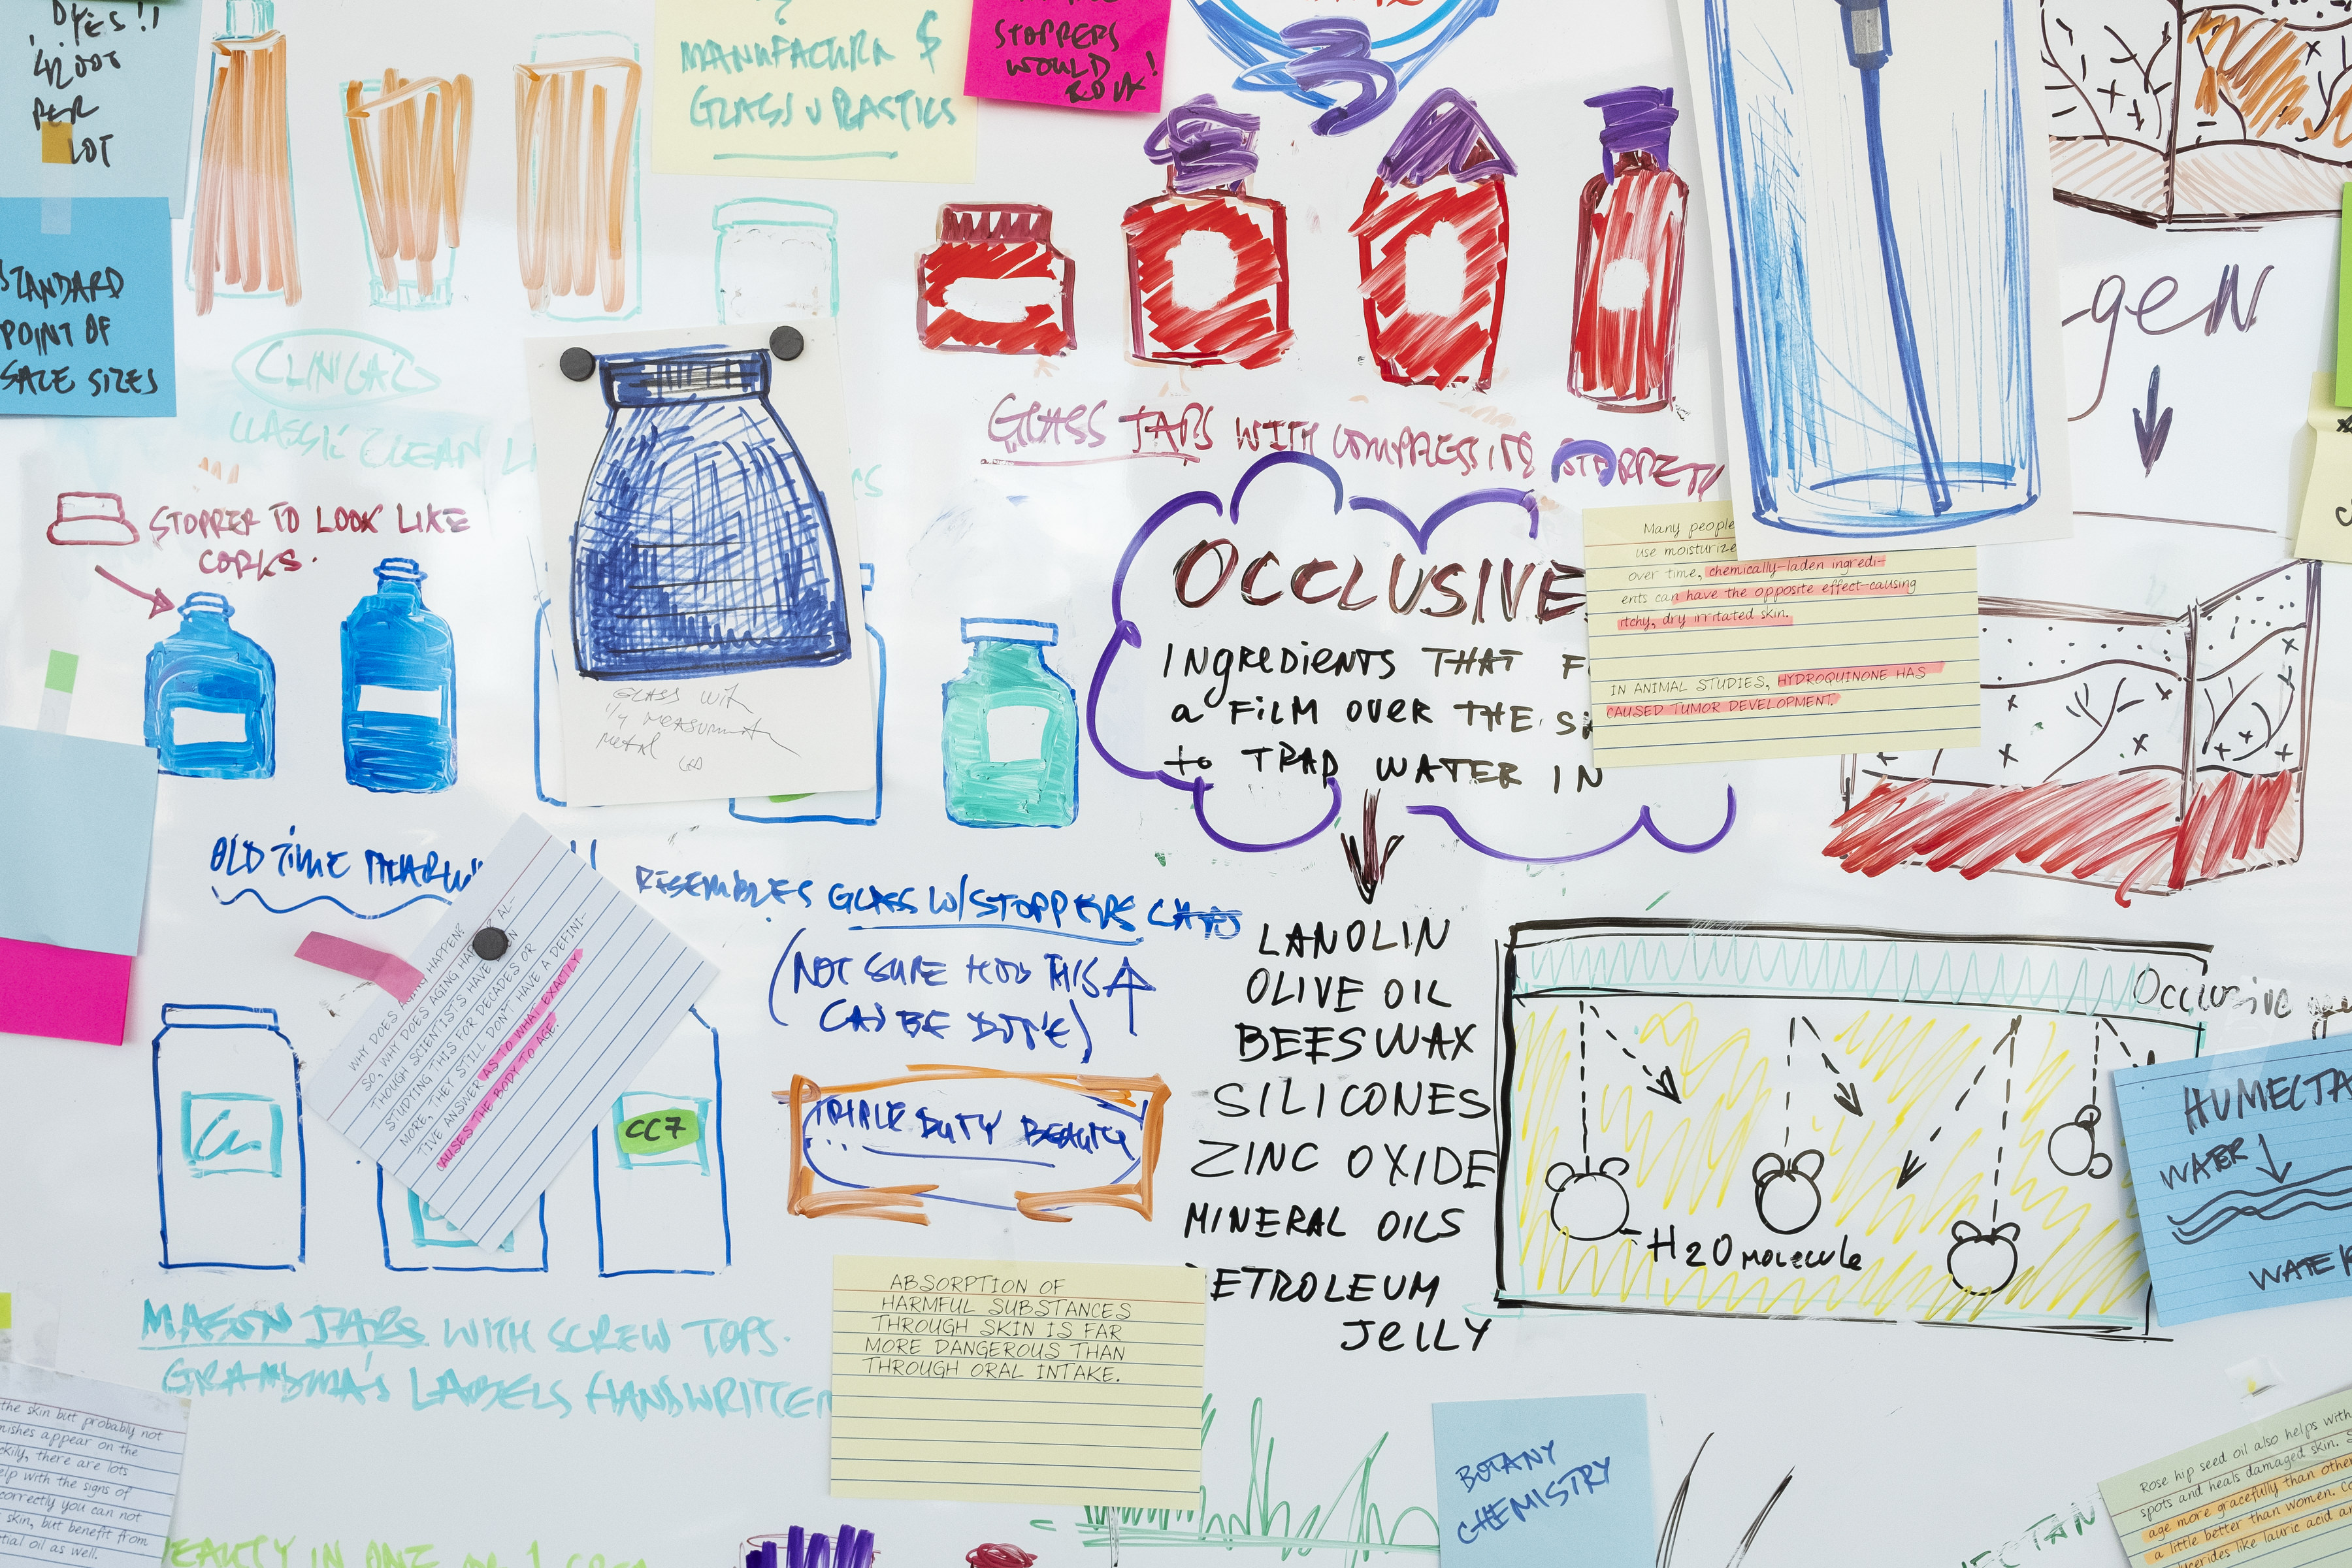 DYES!!
4200T
PER
LOT
STANDARD
POINT OF
SALE SIZES
?
MANUFACTURR $
GLASS V PLASTICS
STOPPERS
WOULD
ROCK!
CLINICAL
CLASSIC CLEAN
STOPPER TO LOOK LIKE
CORKS.
GLASS JARS WITH COMPRESSING
gen
GLASS
1/4
METAL
OCCLUSIVE
INGREDIENTS THAT F
a FILM OVER THE S
to TRAP WATER IN
LANOLIN
OLIVE OIL
BEESWAX
SILICONES
ZINC OXIDE
MINERAL OILS
PETROLEUM
JELLY
Many people
use moisturize
over time, chemically-laden ingredi-
ents can have the opposite effect-causing
itchy, dry irritated skin.
IN ANIMAL STUDIES, HYDROQUINONE HAS
CAUSED TUMOR DEVELOPMENT.
OLD TIME
RESEMBLES GLASS W/STOPPERS
(NOT SURE HOW THIS
CAN BE DONE)
WHY DOES AGING HAPPEN?
SO, WHY DOES AGING HAPPEN? AL-
THOUGH SCIENTISTS HAVE BEEN
STUDYING THIS FOR DECADES OR
MORE, THEY STILL DON'T HAVE A DEFINI-
TIVE ANSWER AS TO WHAT EXACTLY
CAUSES THE BODY TO AGE.
CC7
TRIPLE DUTY BEAUTY
Occlusive
H2O molecule
HUMECTA
WATER
WATER
MASON JARS WITH SCREW TOPS.
GRANDMA'S LABELS HANDWRITTEN
ABSORPTION OF
HARMFUL SUBSTANCES
THROUGH SKIN IS FAR
MORE DANGEROUS THAN
THROUGH ORAL INTAKE.
BOTANY
CHEMISTRY
the skin but probably not
mishes appear on the
ckily, there are lots
elp with the signs of
correctly you can not
skin, but benefit from
tial oil as well.
EAUTY IN ONE
Rose hip seed oil also helps with
spots and heals damaged skin. S
age more gracefully than other
a little better than women. C
ycerides like lauric acid an